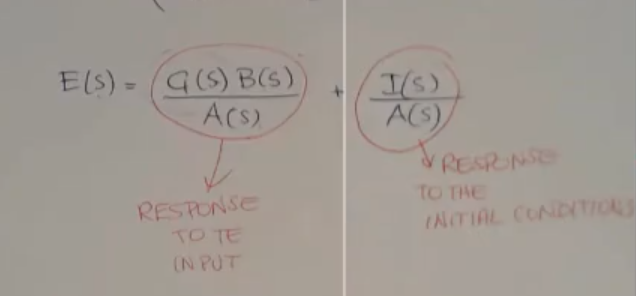 E(S) = G(S) B(S) / A(S) + I(S) / A(S)
RESPONSE
TO TE
INPUT
RESPONSE
TO THE
INITIAL CONDITIONS